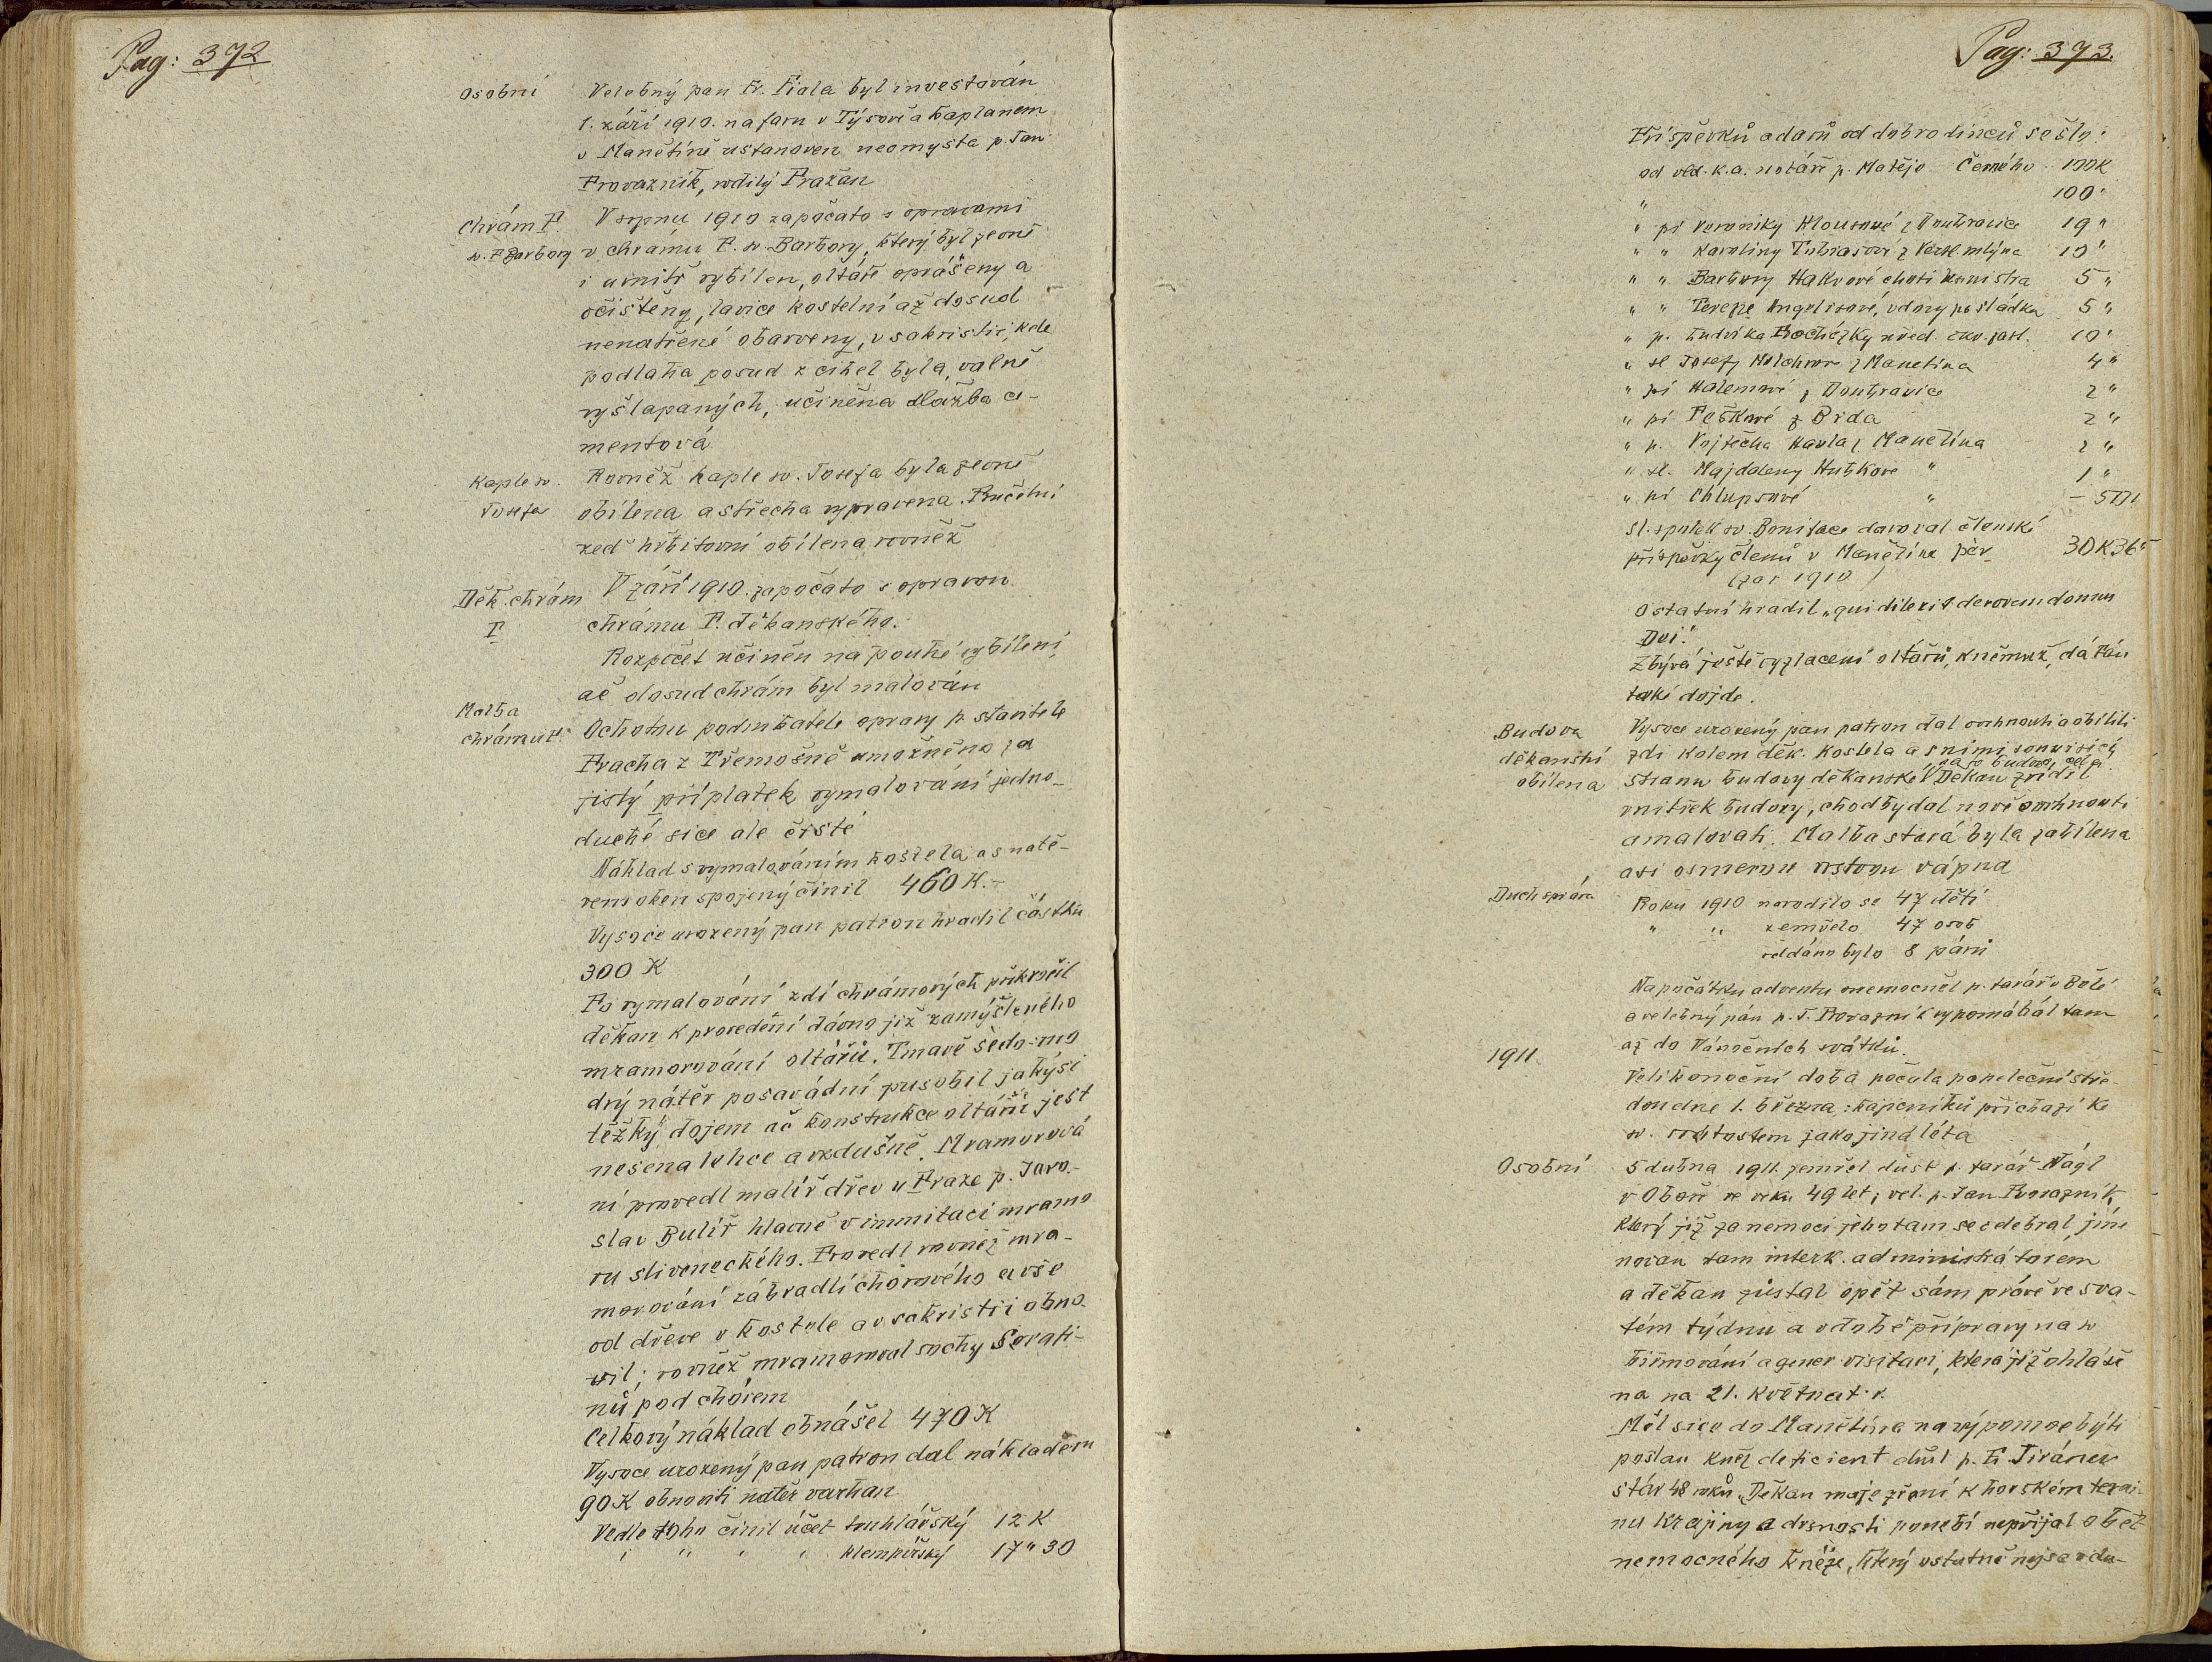 Pag: 372
Osobní Velebný pan Fr. Fiala byl investován
1. září 1910. na faru v Týsově a kaplanem
v Manětíně ustanoven neomysta p. Jan
Provazník, rodilý Pražan
Chrám P. V srpnu 1910 započato s opravami
sv. Barbory v chrámu P. sv. Barbory, který byl zevně
i uvnitř vybílen, oltáře oprášeny a
očištěny, lavice kostelní až dosud
nenatřené obarveny, v sakristii, kde
podlaha posud z cihel byla, valně
vyšlapaných, učiněna dlažba ce-
mentová
Kaple sv. Rovněž kaple sv. Josefa byla zevně
Josefa obílena a střecha vypravena. Průčelní
zeď hřbitovní obílena rovněž
Děk. chrám V září 1910. započato s opravou
P. chrámu P. děkanského.
Rozpočet učiněn na pouhé vybílení,
ač dosud chrám byl malován
Malba
chrámu P. Ochotou podnikatele opravy p. stavitele
Pracha z Třemošné umožněno za
jistý příplatek vymalování jedno-
duché sice ale čisté
Náklad s vymalováním kostela a s natě-
rem oken spojený činil 460 K.-
Vysoce urozený pan patron hradil částku
300 K
Po vymalování zdí chrámových přikročil
děkan k provedení dávno již zamýšleného
mramorování oltářů. Tmavě šedo-mo
drý nátěr posavádní pusobil jakýsi
těžký dojem ač konstrukce oltářů jest
nesena lehce a vzdušně. Mramorová
ní provedl malíř dřev u Praze p. Jaro-
slav Bulíř hlavně v immitaci mramo
ru sliveneckého. Provedl rovněž mra-
morování zábradlí chórového a vše
od dřeve v kostele a v sakristii obno-
vil; rovněž mramoroval sochy Serafi-
nů pod chórem
Celkový náklad obnášel 470 K
Vysoce urozený pan patron dal nákladem
90 K obnoviti nátěr varhan
Vedle toho činil účet truhlářský 12 K
" " " " klempířský 17 " 30
Pag: 373.
Příspěvků a darů od dobrodinců sešlo:
od p. Matěje Černého 100 K
" 100 "
" pí Veroniky Klousové z Doubravice 19 "
" " Karoliny z mlýna 10 "
" " Barbory choti 5 "
" " Terezie Angelisové, vdovy po sládku 5 "
" p. Ludvíka Procházky 10 "
" sl Josefy z Manětína 4 "
" pí z Doubravice 2 "
" pí Peškové z Brda 2 "
" p. Vojtěcha Havla z Manětína 2 "
" sl. Majdaleny Hubkové " 1 "
" pí Chlupsové " - 50 h
Sl. spolek sv Bonifáce daroval členské
příspěvky členů v Manětíně 30 K 36 "
(za r 1910)
Ostatní hradil „qui dilexit decorem domus
Dei."
Zbývá ještě vyzlacení oltářů, k němuž, dá Pán
také dojde.
Budova Vysoce urozený pan patron dal ovrhnouti a obíliti
děkanství zdi kolem děk. kostela a s nimi souvisící
obílena stranu budovy děkanské. Děkan zřídil
vnitřek budovy, chodby dal nově ovrhnouti
a malovati. Malba stará byla zabílena
asi osmerou vrstvou vápna
Duch správa Roku 1910 narodilo se 47 dětí
" " zemřelo 47 osob
oddáno bylo 8 párů
Na počátku adventu onemocněl p. farář v Bělé
a velebný pán p. J. Provazník vypomáhal tam
až do Vánočních svátků.
1911. Velikonoční doba počala popeleční stře-
dou dne 1. března: kajicníků přichází ke
sv. svátostem jako jindy léta
Osobní 5 dubna 1911. zemřel důst p. farář Nágl
v Oboře ve věku 49 let; vel. p. Jan Provazník,
který již za nemoci jeho tam se odebral jme
nován tam interk. administrátorem
a děkan zůstal opět sám právě ve sva-
tém týdnu a v době přípravy na sv
biřmování a gener. visitaci, která již ohláše
na na 21. května t. r.
Měl sice do Manětína na výpomoc býti
poslán kněz deficient důst p. Fr Jiránek
stár 48 roků. Děkan maje zření k horskému terai-
nu krajiny a drsnosti ponebí nepřijal oběť
nemocného kněze, který ostatně nejsa